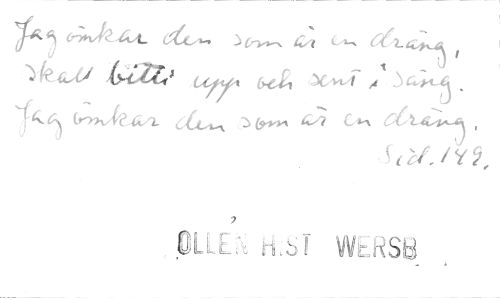 Jag ömkar den som är en dräng,
skall bitti upp och sent i säng.
Jag ömkar den som är en dräng.
Sid. 149.
OLLÉN HIST WERSB